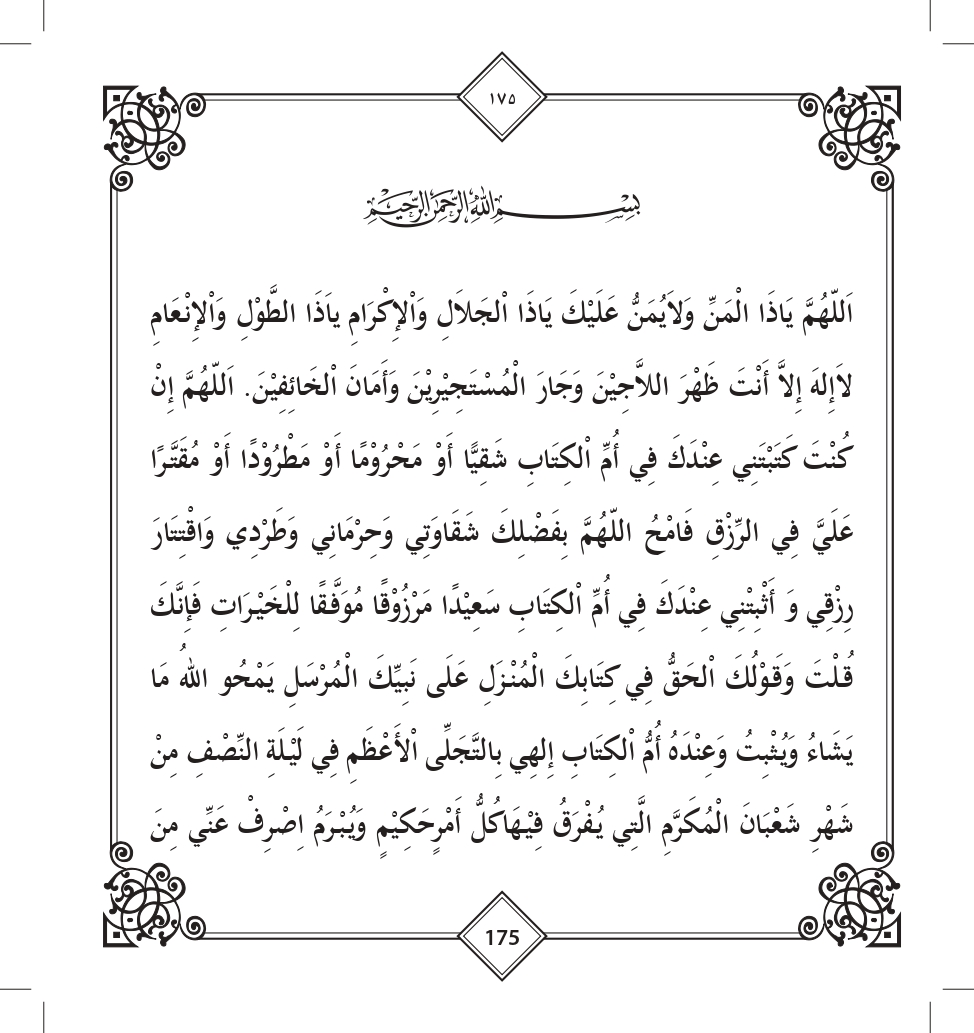 ١٧٥
بِسْمِ اللهِ الرَّحْمٰنِ الرَّحِيْمِ
اَللّٰهُمَّ يَاذَا الْمَنِّ وَلاَيُمَنُّ عَلَيْكَ يَاذَا اْلجَلاَلِ وَاْلإِكْرَامِ ياَذَا الطَّوْلِ وَاْلإِنْعَامِ
لاَإِلهَ إِلاَّ أَنْتَ ظَهْرَ اللاَّجِيْنَ وَجَارَ الْمُسْتَجِيْرِيْنَ وَأَمَانَ اْلخَائِفِيْنَ. اَللّٰهُمَّ إِنْ
كُنْتَ كَتَبْتَنِي عِنْدَكَ فِي أُمِّ اْلكِتَابِ شَقِيًّا أَوْ مَحْرُوْمًا أَوْ مَطْرُوْدًا أَوْ مُقَتَّرًا
عَلَيَّ فِي الرِّزْقِ فَامْحُ اللّٰهُمَّ بِفَضْلِكَ شَقَاوَتِي وَحِرْمَانِي وَطَرْدِي وَاقْتِتَارَ
رِزْقِي وَ أَثْبِتْنِي عِنْدَكَ فِي أُمِّ اْلكِتَابِ سَعِيْدًا مَرْزُوْقًا مُوَفَّقًا لِلْخَيْرَاتِ فَإِنَّكَ
قُلْتَ وَقَوْلُكَ اْلحَقُّ فِي كِتَابِكَ الْمُنْزَلِ عَلَى نَبِيِّكَ الْمُرْسَلِ يَمْحُو اللهُ مَا
يَشَاءُ وَيُثْبِتُ وَعِنْدَهُ أُمُّ اْلكِتَابِ إِلهِي بِالتَّجَلِّى اْلأَعْظَمِ فِي لَيْلَةِ النِّصْفِ مِنْ
شَهْرِ شَعْبَانَ الْمُكَرَّمِ الَّتِي يُفْرَقُ فِيْهَاكُلُّ أَمْرٍحَكِيْمٍ وَيُبْرَمُ اِصْرِفْ عَنِّي مِنَ
175